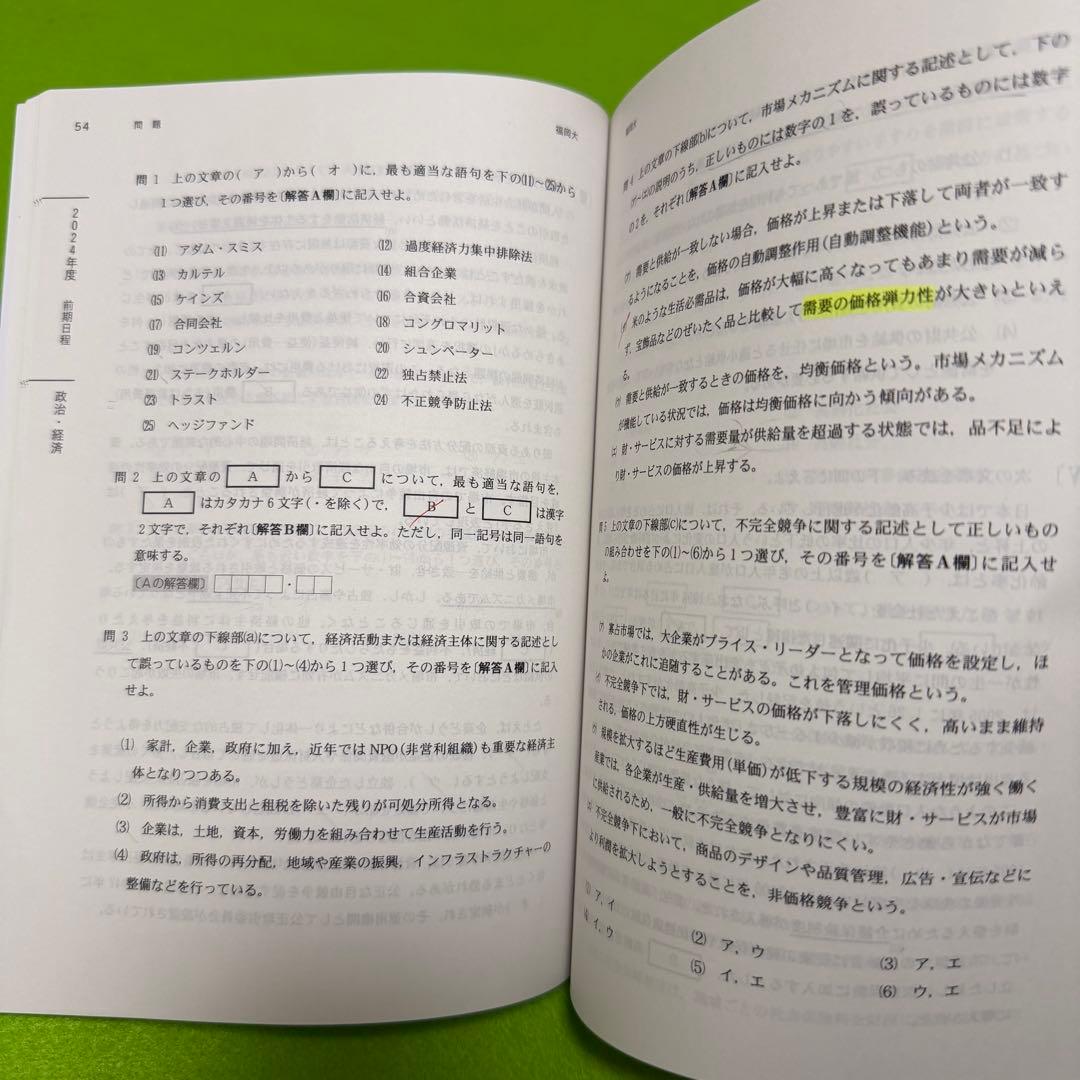 54 問題 福岡大
2024年度 前期日程 政治・経済
問1 上の文章の( ア )から( オ )に，最も適当な語句を下の⑾～㉕から
1つ選び，その番号を〔解答A欄〕に記入せよ。
⑾ アダム・スミス ⑿ 過度経済力集中排除法
⒀ カルテル ⒁ 組合企業
⒂ ケインズ ⒃ 合資会社
⒄ 合同会社 ⒅ コングロマリット
⒆ コンツェルン ⒇ シュンペーター
(21) ステークホルダー (22) 独占禁止法
(23) トラスト (24) 不正競争防止法
(25) ヘッジファンド
問2 上の文章の A から C について，最も適当な語句を，
A はカタカナ6文字(・を除く)で， B と C は漢字
2文字で，それぞれ〔解答B欄〕に記入せよ。ただし，同一記号は同一語句を
意味する。
〔Aの解答欄〕 ・
問3 上の文章の下線部(a)について，経済活動または経済主体に関する記述とし
て誤っているものを下の(1)～(4)から1つ選び，その番号を〔解答A欄〕に記入
せよ。
(1) 家計，企業，政府に加え，近年ではNPO(非営利組織)も重要な経済主
体となりつつある。
(2) 所得から消費支出と租税を除いた残りが可処分所得となる。
(3) 企業は，土地，資本，労働力を組み合わせて生産活動を行う。
(4) 政府は，所得の再分配，地域や産業の振興，インフラストラクチャーの
整備などを行っている。
福岡大
問4 上の文章の下線部(b)について，市場メカニズムに関する記述として，下の
(ア)～(エ)の説明のうち，正しいものには数字の1を，誤っているものには数字
の2を，それぞれ〔解答A欄〕に記入せよ。
(ア) 需要と供給が一致しない場合，価格が上昇または下落して両者が一致す
るようになることを，価格の自動調整作用(自動調整機能)という。
(イ) 米のような生活必需品は，価格が大幅に高くなってもあまり需要が減ら
ず，宝飾品などのぜいたく品と比較して需要の価格弾力性が大きいといえ
る。
(ウ) 需要と供給が一致するときの価格を，均衡価格という。市場メカニズム
が機能している状況では，価格は均衡価格に向かう傾向がある。
(エ) 財・サービスに対する需要量が供給量を超過する状態では，品不足によ
り財・サービスの価格が上昇する。
問5 上の文章の下線部(c)について，不完全競争に関する記述として正しいもの
の組み合わせを下の(1)～(6)から1つ選び，その番号を〔解答A欄〕に記入せ
よ。
(ア) 寡占市場では，大企業がプライス・リーダーとなって価格を設定し，ほ
かの企業がこれに追随することがある。これを管理価格という。
(イ) 不完全競争下では，財・サービスの価格が下落しにくく，高いまま維持
される，価格の上方硬直性が生じる。
(ウ) 規模を拡大するほど生産費用(単価)が低下する規模の経済性が強く働く
産業では，各企業が生産・供給量を増大させ，豊富に財・サービスが市場
に供給されるため，一般に不完全競争となりにくい。
(エ) 不完全競争下において，商品のデザインや品質管理，広告・宣伝などに
より利潤を拡大しようとすることを，非価格競争という。
(1) ア，イ (2) ア，ウ (3) ア，エ
(4) イ，ウ (5) イ，エ (6) ウ，エ